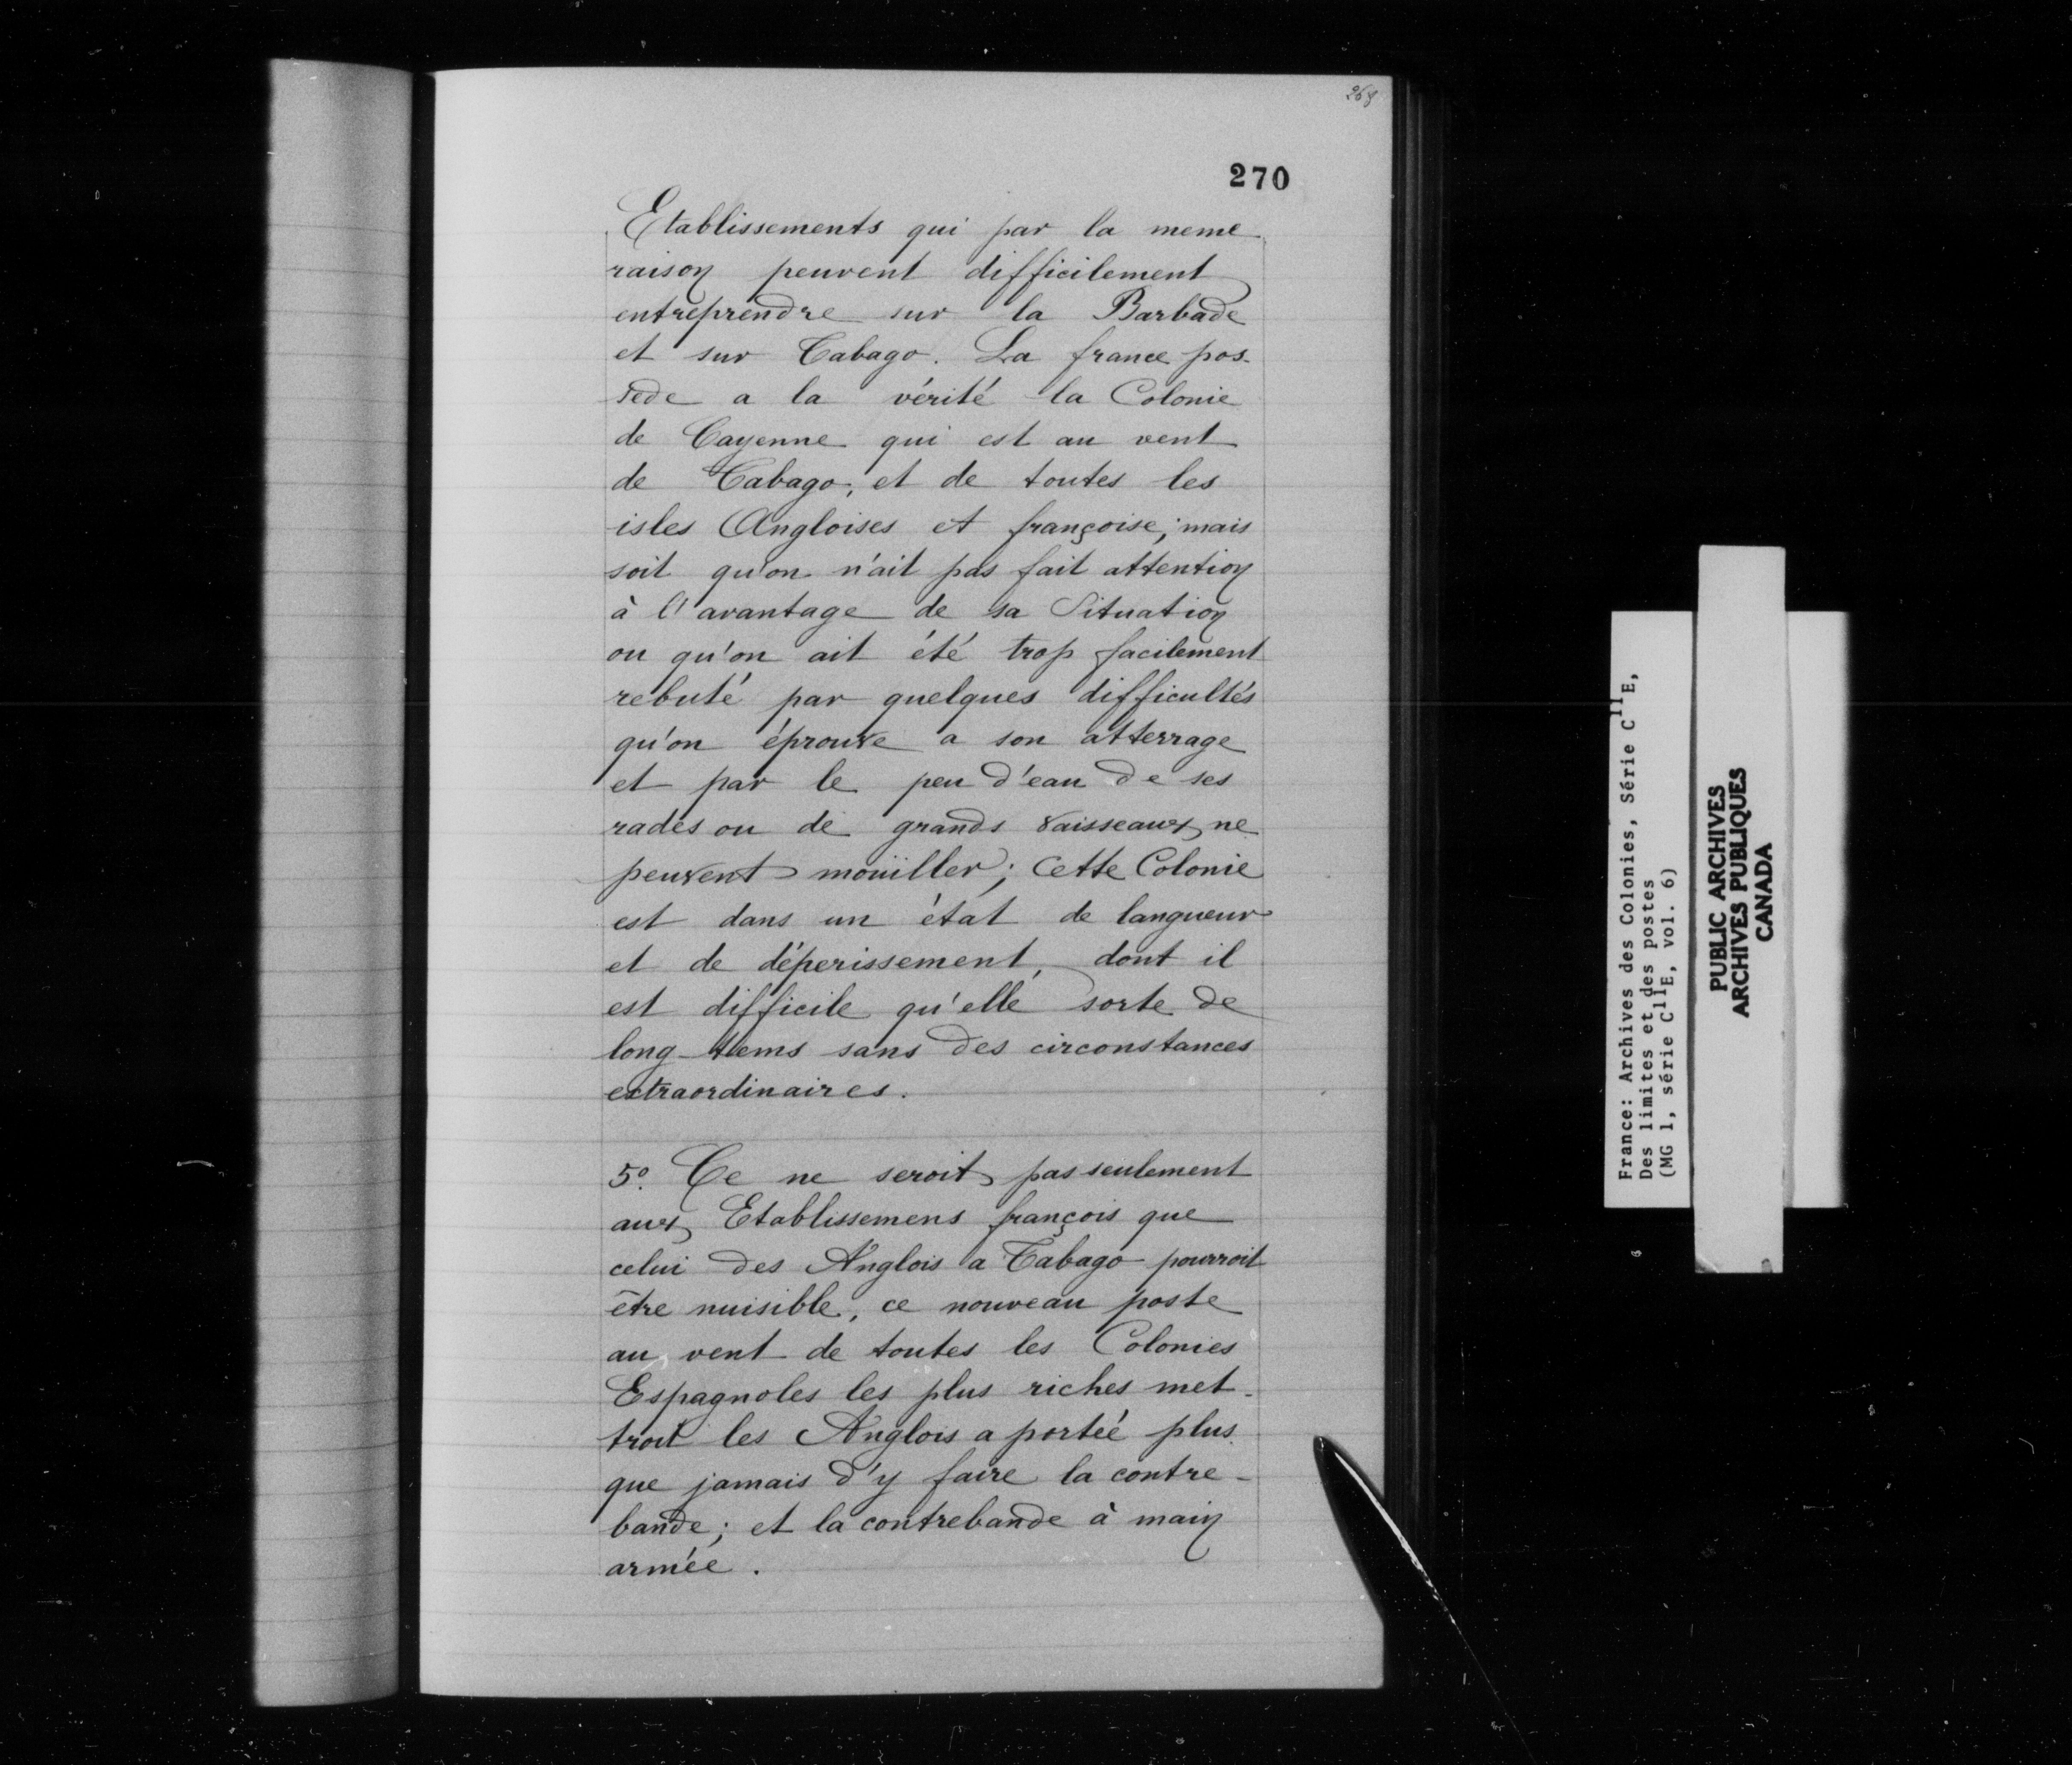 268
270
Etablissements qui par la meme
raison peuvent difficilement
entreprendre sur la Barbade
et sur Tabago. La france pos-
sede a la vérité la Colonie
de Cayenne qui est au vent
de Tabago, et de toutes les
isles Angloises et françoise; mais
soit qu'on n'ait pas fait attention
à l'avantage de sa Situation
ou qu'on ait été trop facilement
rebuté par quelques difficultés
qu'on éprouve a son atterrage
et par le peu d'eau de ses
rades ou de grands vaisseaux ne
peuvent moüiller; cette Colonie
est dans un état de langueur
et de déperissement, dont il
est difficile qu'elle sorte de
long-tems sans des circonstances
extraordinaires.
5º. Ce ne seroit pas seulement
aux Etablissemens françois que
celui des Anglois a Tabago pourroit
être nuisible, ce nouveau poste
au vent de toutes les Colonies
Espagnoles les plus riches met-
troit les Anglois a portéé plus
que jamais d'y faire la contre-
bande; et la contrebande à main
armée.
France: Archives des Colonies, Série C11E,
Des limites et des postes
(MG 1, série C11E, vol. 6)
PUBLIC ARCHIVES
ARCHIVES PUBLIQUES
CANADA